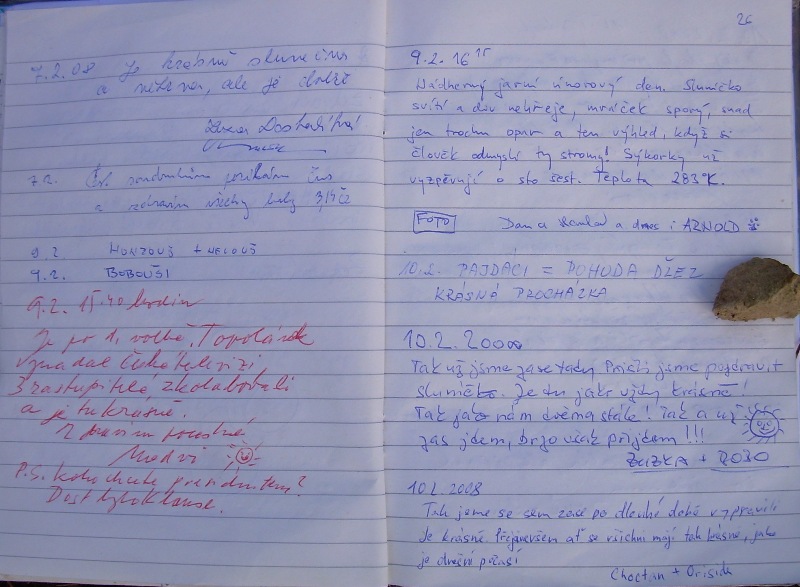 7.2.08 Je krásně slunečno
a , ale je

7.2.
a zdravím všechny
9.2. HONZOUŠ +
9.2. BOBOUŠI
9.2. 15.40 hodin
Je po 1. volbě, Topolánek
České televizi,
3 zastupitelé zkolabovali
a je tu krásně.
Zdravím
Medvi
P.S. Koho chcete presidentem?
Dost bylo Klause.
26
9.2. 16 15
Nádherný jarní únorový den. Sluníčko
svítí a div nehřeje, mráček sporý, snad
jen trochu opar a ten výhled, když si
člověk odmyslí ty stromy! Sýkorky už
vyzpěvují o sto šest. Teplota 283°K.
FOTO Dana a dnes i ARNOLD
10.2. PAJDÁCI = POHODA DŽEZ
KRÁSNÁ PROCHÁZKA
10.2. 2008
Tak už jsme zase tady. Přišli jsme pozdravit
sluníčko. Je tu jako vždy krásně!
Tak jako nám dvěma stále! Tak a už
zas jdem, brzo však přijdem!!!
ZUZKA + ROBO
10.2.2008
Tak jsme se sem zase po dlouhé době vypravili
Je krásně. Přejeme všem ať se všichni mají tak krásně, jako
je dnešní počasí
Choctan + Oriside